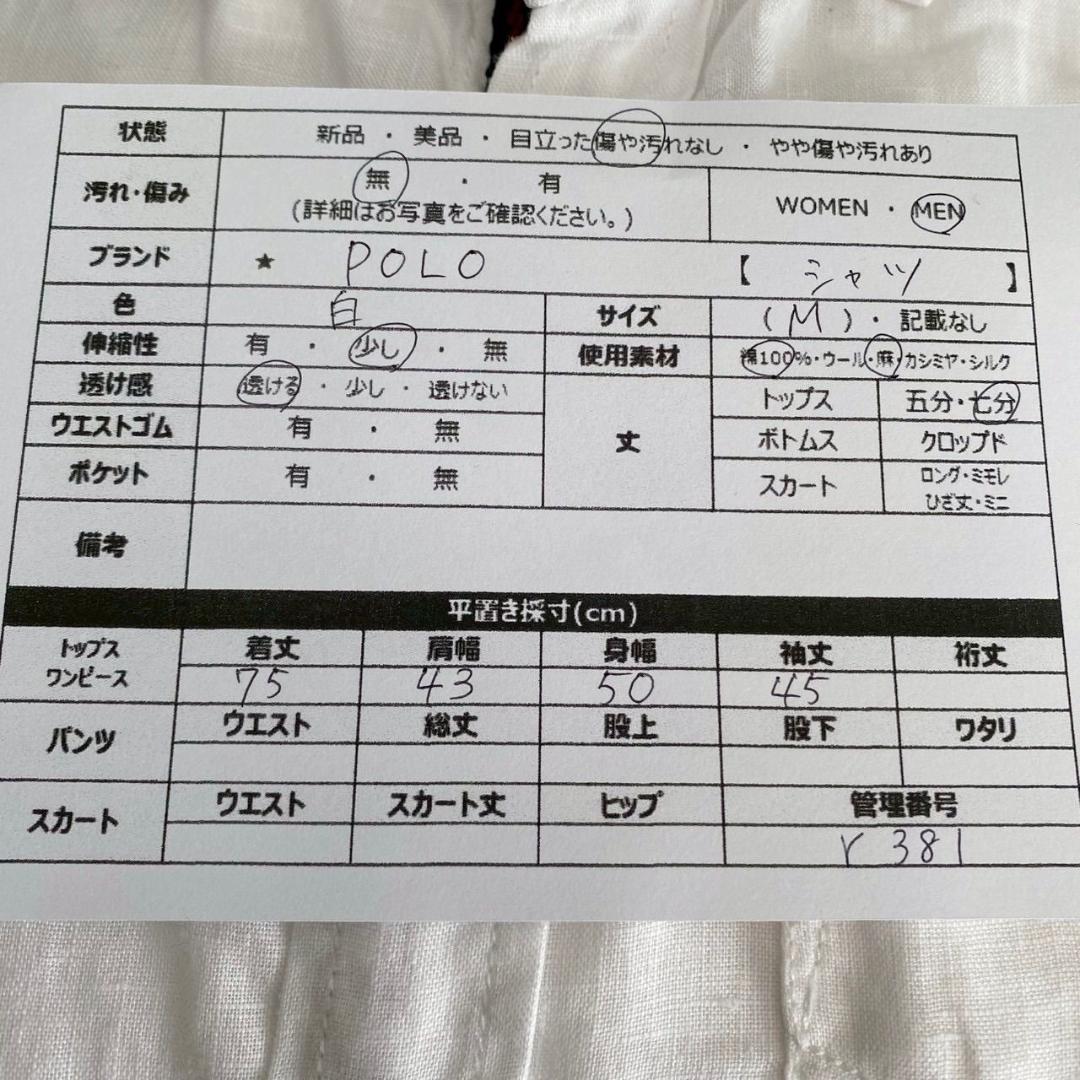 状態 新品 ・ 美品 ・ 目立った傷や汚れなし ・ やや傷や汚れあり
汚れ・傷み 無 ・ 有 WOMEN ・ MEN
(詳細はお写真をご確認ください。)
ブランド ★ POLO 【 シャツ 】
色 白 サイズ (M)・記載なし
伸縮性 有 ・ 少し ・ 無 使用素材 綿100%・ウール・麻 カシミヤ・シルク
透け感 透ける ・ 少し ・ 透けない 丈 トップス 五分・七分
ウエストゴム 有 ・ 無 ボトムス クロップド
ポケット 有 ・ 無 スカート ロング・ミモレ
ひざ丈・ミニ
備考
平置き採寸(cm)
トップス 着丈 肩幅 身幅 袖丈 裄丈
ワンピース 75 43 50 45
パンツ ウエスト 総丈 股上 股下 ワタリ
スカート ウエスト スカート丈 ヒップ 管理番号
r 381